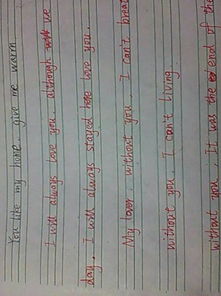 You like my home, give me warm
I will always love you although we
day. I will always stayed here love you.
My lover, without you I can't brea
without you I can't living
without you It was the end of the